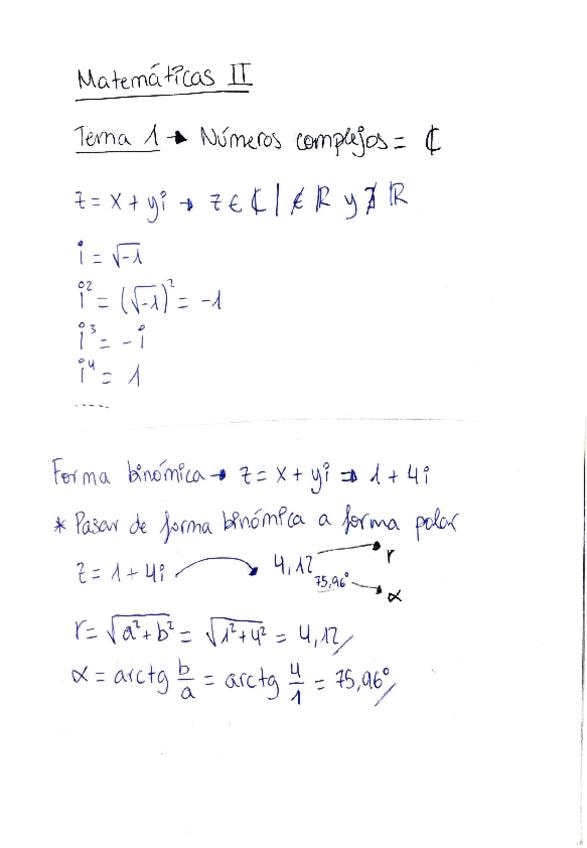 Matemáticas II
Tema 1 → Números complejos = ℂ
z = x + yi → z ∈ ℂ | ∉ ℝ y ∄ ℝ
i = √-1
i² = (√-1)² = -1
i³ = -i
i⁴ = 1
.....
Forma binómica → z = x + yi ⇒ 1 + 4i
* Pasar de forma binómica a forma polar
z = 1 + 4i → 4,12 75,96° → r → α
r = √a²+b² = √1²+4² = 4,12/
α = arctg b/a = arctg 4/1 = 75,96°/